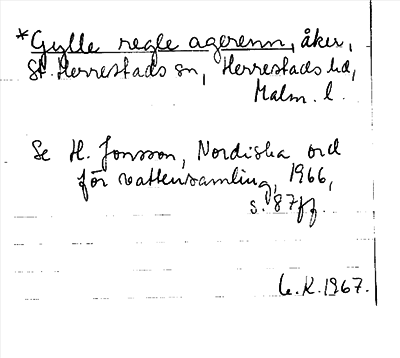 *Gylle regle agerenn, åker,
St. Herrestads sn, Herrestads hd,
Malm. l.
Se H. Jonsson, Nordiska ord
för vattensamling, 1966,
s. 87ff.
C.K. 1967.